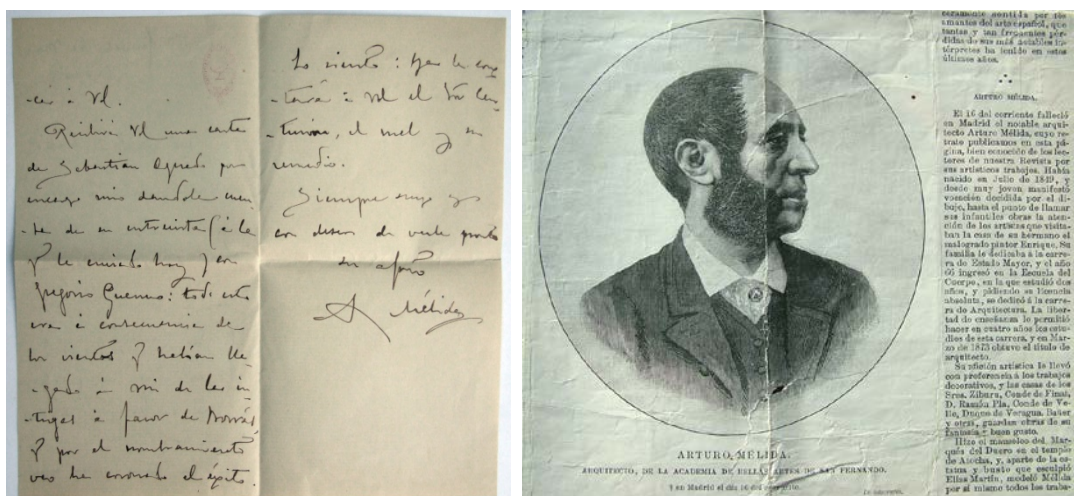 -cer à Vd.
Recibirá Vd una carta
de Sebastián Agredo por
encargo mio dandole cuen-
-ta de su entrevista (á la
q le enviado hoy) con
Gregorio Guemus: todo esto
era á consecuencia de
los vientos q habían lle-
-gado á mi de las in-
-trigas á favor de
q por el nombramiento
veo ha coronado el éxito.
Lo siento:
-tará á Vd el
-turione, el mal y su
remedio.
Siempre muy
con deseos de verle pronto
su afmo
A Mélida
ceramente sentida por los
amantes del arte español, que
tantas y tan frecuentes pér-
didas de sus más notables in-
térpretes ha tenido en estos
últimos años.
ARTURO MÉLIDA.
El 16 del corriente falleció
en Madrid el notable arqui-
tecto Arturo Mélida, cuyo re-
trato publicamos en esta pá-
gina, bien conocido de los lec-
tores de nuestra Revista por
sus artísticos trabajos. Había
nacido en Julio de 1849, y
desde muy joven manifestó
vocación decidida por el di-
bujo, hasta el punto de llamar
sus infantiles obras la aten-
ción de los artistas que visita-
ban la casa de su hermano el
malogrado pintor Enrique. Su
familia le dedicaba á la carre-
ra de Estado Mayor, y el año
66 ingresó en la Escuela del
Cuerpo, en la que estudió dos
años, y pidiendo su licencia
absoluta, se dedicó á la carre-
ra de Arquitectura. La liber-
tad de enseñanza le permitió
hacer en cuatro años los estu-
dios de esta carrera, y en Mar-
zo de 1873 obtuvo el título de
arquitecto.
Su afición artística le llevó
con preferencia á los trabajos
decorativos, y las casas de los
Sres. Zíburu, Conde de Finat,
D. Ramón Pla, Conde de Ve-
lle, Duque de Veragua, Bauer
y otras, guardan obras de su
fantasía y buen gusto.
Hizo el mausoleo del Mar-
qués del Duero en el templo
de Atocha, y, aparte de la es-
tatua y busto que esculpió
Elías Martín, modeló Mélida
por sí mismo todos los traba-
ARTURO MÉLIDA.
ARQUITECTO, DE LA ACADEMIA DE BELLAS ARTES DE SAN FERNANDO.
† en Madrid el día 16 del corriente.